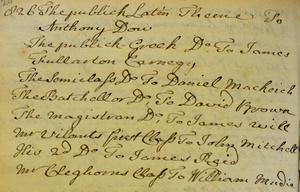 The publick Latin Theme To
Anthony Dow
The publick Greek Do To James
Fullarton Carnegy
The Semiclass Do To Daniel Mackeich
The Batchellor Do To David Brown
The magistran Do To James Will
Mr Vilants first Class To John Mitchell
His 2d Do To James Reid
Mr Cleghorns Class To William Mudie